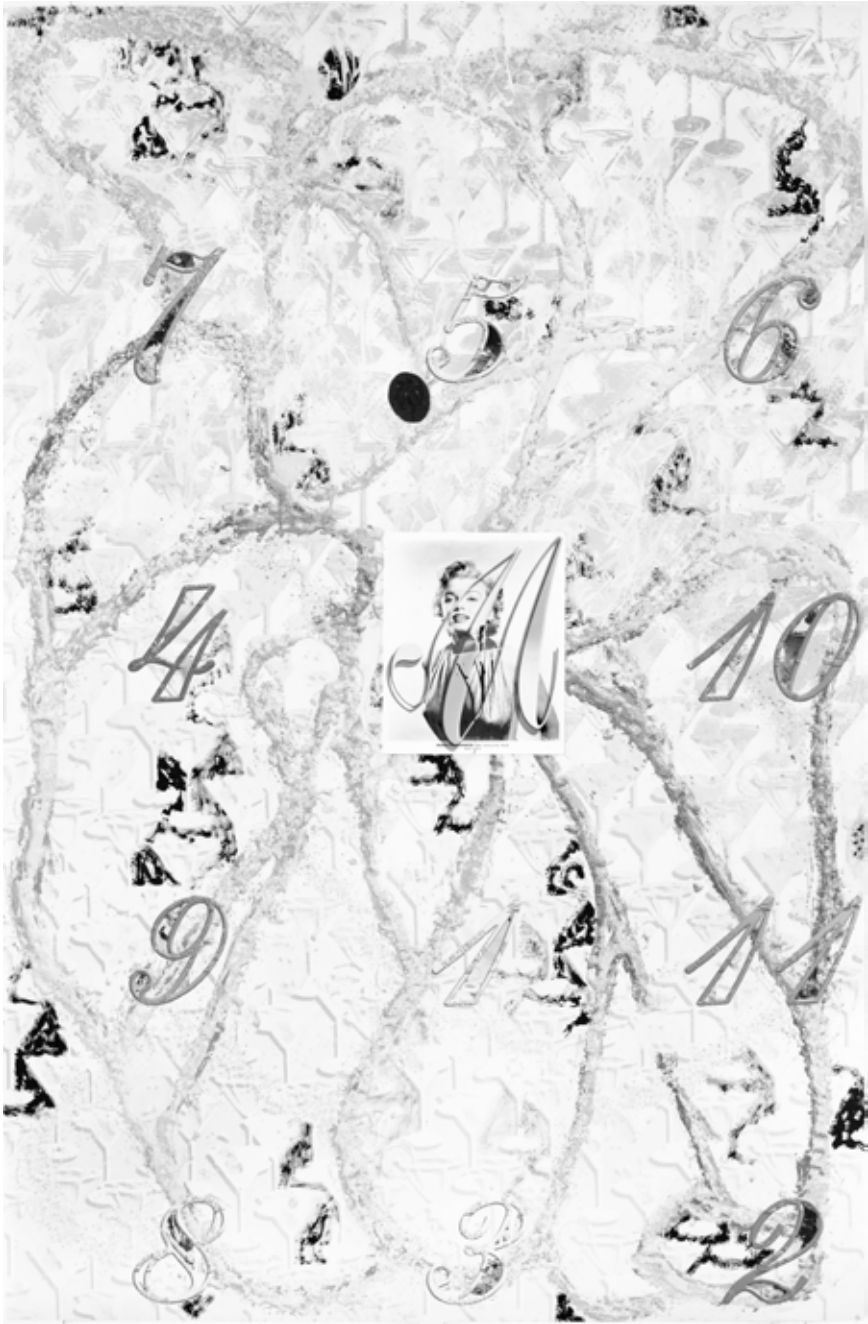 7 5 6
4 M 10
9 1 11
8 3 2